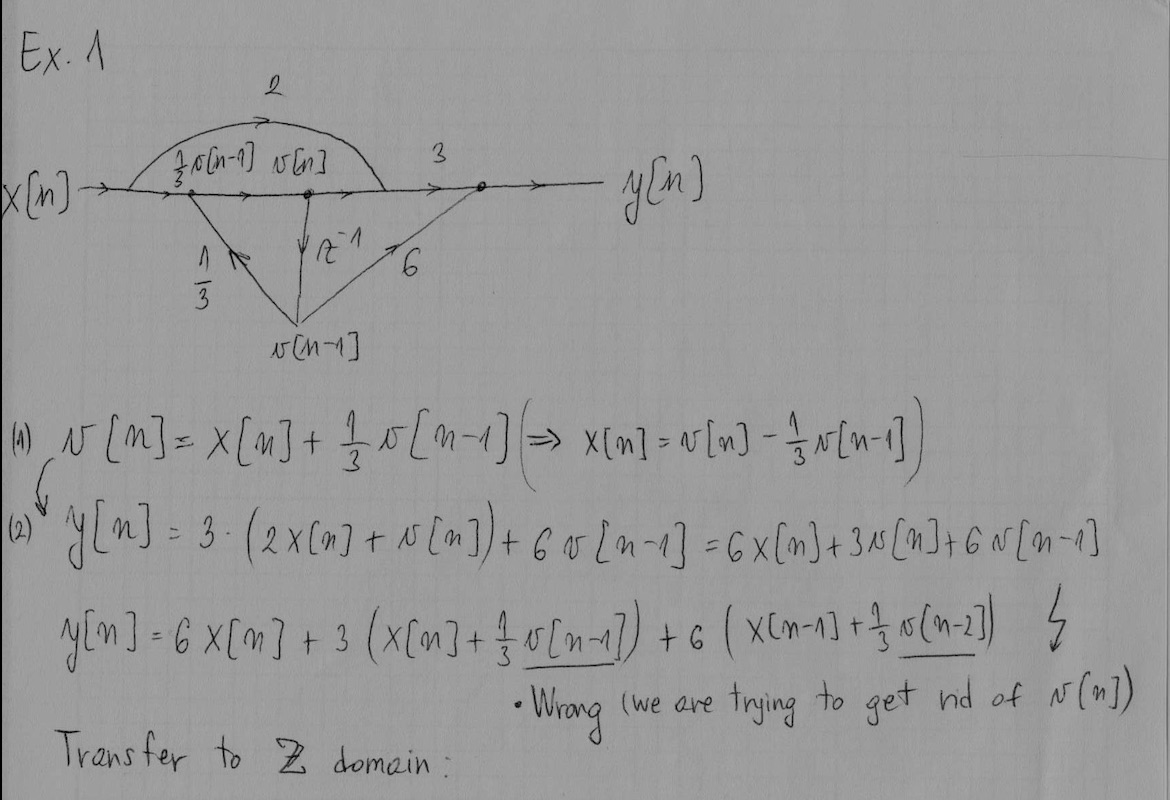 Ex. 1
2
1/3 v[n-1] v[n]
3
x[n]
y[n]
1/3
z⁻¹
6
v[n-1]
(1) v[n] = x[n] + 1/3 v[n-1] (⇒ x[n] = v[n] - 1/3 v[n-1])
(2) y[n] = 3 · (2x[n] + v[n]) + 6v[n-1] = 6x[n] + 3v[n] + 6v[n-1]
y[n] = 6x[n] + 3(x[n] + 1/3 v[n-1]) + 6(x[n-1] + 1/3 v[n-2])
• Wrong (we are trying to get rid of v[n])
Transfer to Z domain: